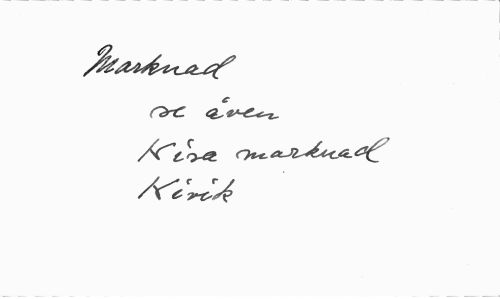 Marknad
se även
Kisa marknad
Kivik